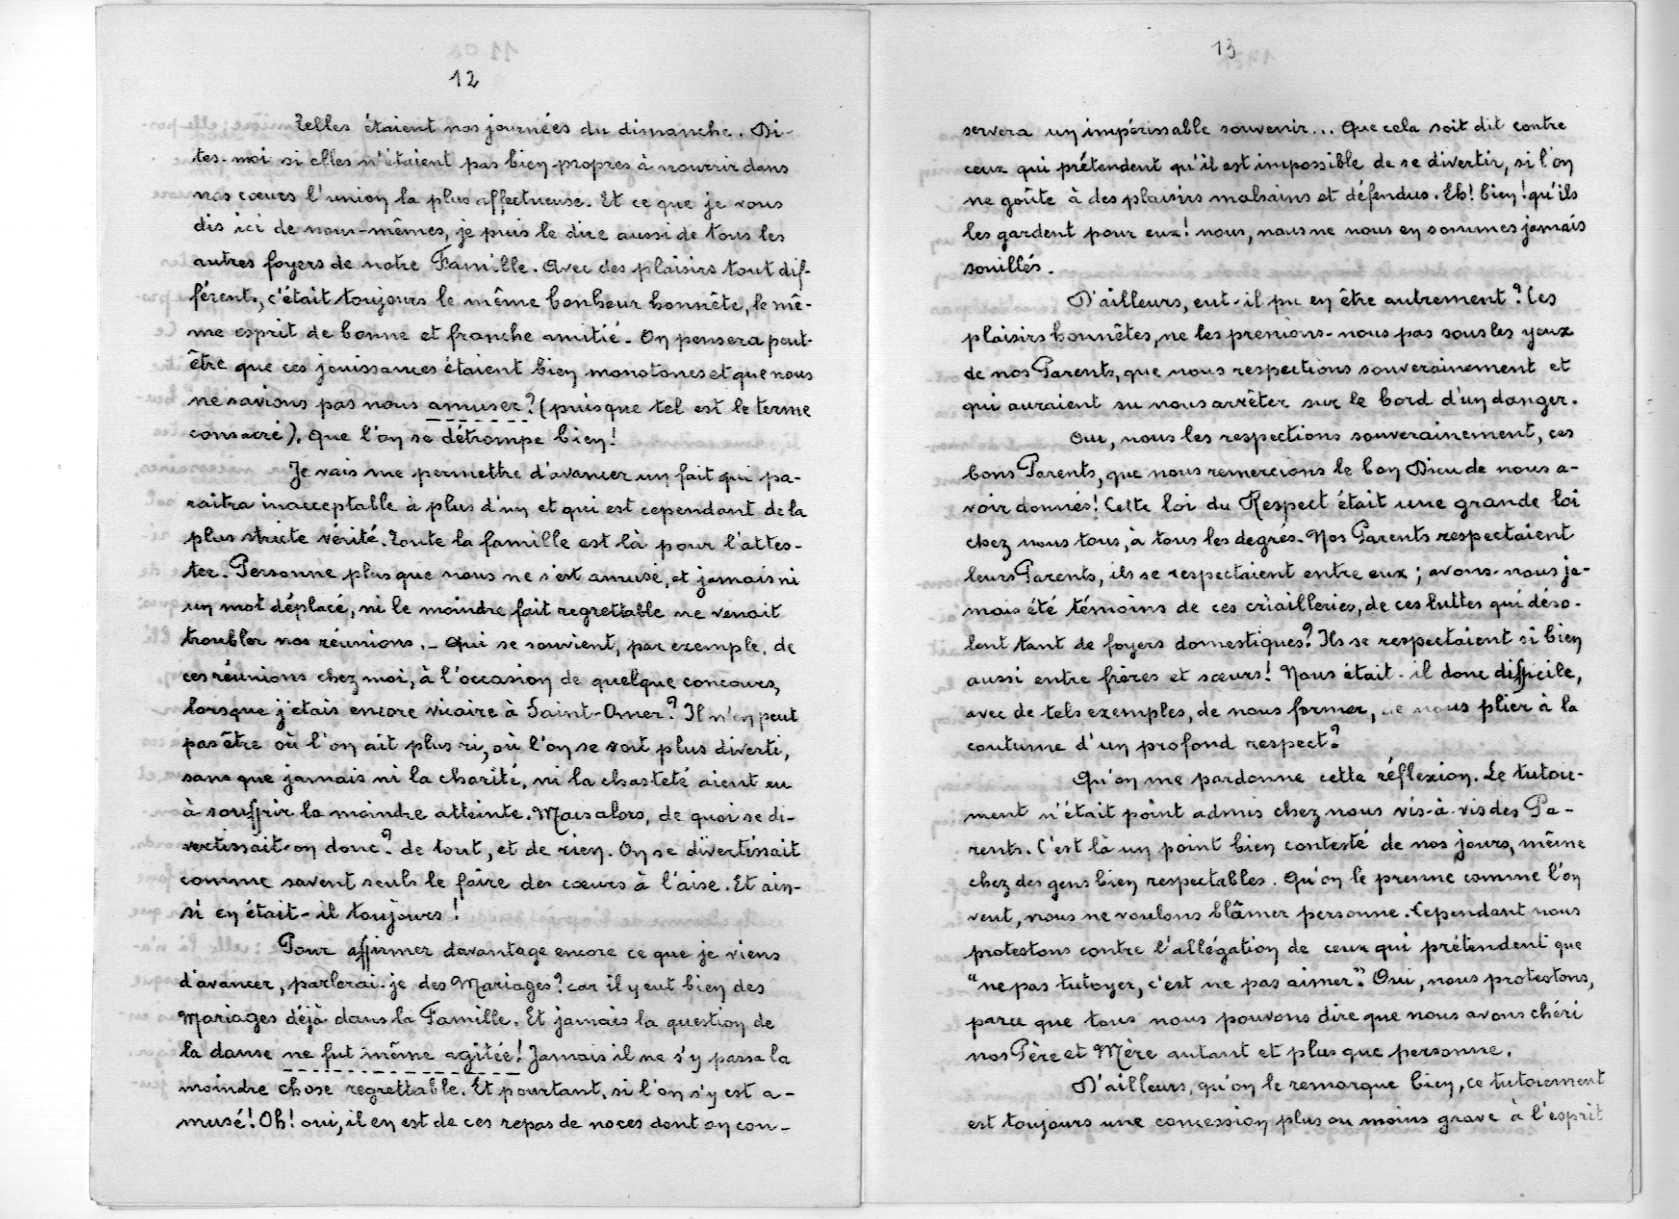 12
Telles étaient nos journées du dimanche. Di-
tes-moi si elles n'étaient pas bien propres à nourrir dans
nos cœurs l'union la plus affectueuse. Et ce que je vous
dis ici de nous-mêmes, je puis le dire aussi de tous les
autres foyers de notre Famille. Avec des plaisirs tout dif-
férents, c'était toujours le même bonheur honnête, le mê-
me esprit de bonne et franche amitié. On pensera peut-
être que ces jouissances étaient bien monotones et que nous
ne savions pas nous amuser? (puisque tel est le terme
consacré). Que l'on se détrompe bien!
Je vais me permettre d'avancer un fait qui pa-
raitra inacceptable à plus d'un et qui est cependant de la
plus stricte vérité. Toute la famille est là pour l'attes-
ter. Personne plus que nous ne s'est amusé, et jamais ni
un mot déplacé, ni le moindre fait regrettable ne venait
troubler nos réunions. - Qui se souvient, par exemple, de
ces réunions chez moi, à l'occasion de quelque concours,
lorsque j'étais encore vicaire à Saint-Omer? Il n'en peut
pas être où l'on ait plus ri, où l'on se soit plus diverti,
sans que jamais ni la charité, ni la chasteté aient eu
à souffrir la moindre atteinte. Mais alors, de quoi se di-
vertissait-on donc? de tout, et de rien. On se divertissait
comme savent seuls le faire des cœurs à l'aise. Et ain-
si en était-il toujours!
Pour affirmer davantage encore ce que je viens
d'avancer, parlerai-je des Mariages? car il y eut bien des
Mariages déjà dans la Famille. Et jamais la question de
la danse ne fut même agitée! Jamais il ne s'y passa la
moindre chose regrettable. Et pourtant, si l'on s'y est a-
musé! Oh! oui, il en est de ces repas de noces dont on con-
13
servera un impérissable souvenir... Que cela soit dit contre
ceux qui prétendent qu'il est impossible de se divertir, si l'on
ne goûte à des plaisirs malsains et défendus. Eh! bien! qu'ils
les gardent pour eux! nous, nous ne nous en sommes jamais
souillés.
D'ailleurs, eut-il pu en être autrement? Ces
plaisirs honnêtes, ne les prenions-nous pas sous les yeux
de nos Parents, que nous respections souverainement et
qui auraient su nous arrêter sur le bord d'un danger.
Oui, nous les respections souverainement, ces
bons Parents, que nous remercions le bon Dieu de nous a-
voir donnés! Cette loi du Respect était une grande loi
chez nous tous, à tous les degrés. Nos Parents respectaient
leurs Parents, ils se respectaient entre eux; avons-nous ja-
mais été témoins de ces criailleries, de ces luttes qui déso-
lent tant de foyers domestiques? Ils se respectaient si bien
aussi entre frères et sœurs! Nous était-il donc difficile,
avec de tels exemples, de nous former, de nous plier à la
coutume d'un profond respect?
Qu'on me pardonne cette réflexion. Le tutoie-
ment n'était point admis chez nous vis-à-vis des Pa-
rents. C'est là un point bien contesté de nos jours, même
chez des gens bien respectables. Qu'on le prenne comme l'on
veut, nous ne voulons blâmer personne. Cependant nous
protestons contre l'allégation de ceux qui prétendent que
"ne pas tutoyer, c'est ne pas aimer". Oui, nous protestons,
parce que tous nous pouvons dire que nous avons chéri
nos Père et Mère autant et plus que personne.
D'ailleurs, qu'on le remarque bien, ce tutoiement
est toujours une concession plus ou moins grave à l'esprit